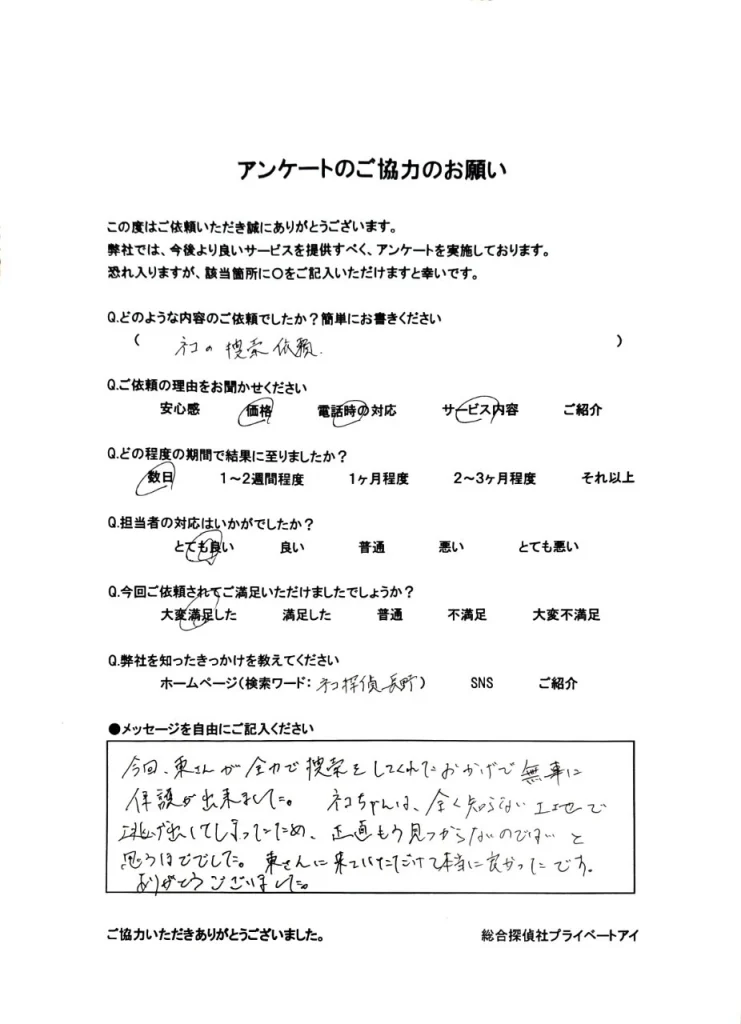 アンケートのご協力のお願い
この度はご依頼いただき誠にありがとうございます。
弊社では、今後より良いサービスを提供すべく、アンケートを実施しております。
恐れ入りますが、該当箇所に〇をご記入いただけますと幸いです。
Q.どのような内容のご依頼でしたか？簡単にお書きください
( ネコの捜索依頼. )
Q.ご依頼の理由をお聞かせください
安心感 価格 電話時の対応 サービス内容 ご紹介
Q.どの程度の期間で結果に至りましたか？
数日 1～2週間程度 1ヶ月程度 2～3ヶ月程度 それ以上
Q.担当者の対応はいかがでしたか？
とても良い 良い 普通 悪い とても悪い
Q.今回ご依頼されてご満足いただけましたでしょうか？
大変満足した 満足した 普通 不満足 大変不満足
Q.弊社を知ったきっかけを教えてください
ホームページ(検索ワード: ネコ探偵長野) SNS ご紹介
●メッセージを自由にご記入ください
今回、東さんが全力で捜索をしてくれたおかげで無事に
保護が出来ました。 ネコちゃんは、全く知らない土地で
逃げ出してしまったため、正直もう見つからないのではいと
思うほどでした。東さんに来ていただけて本当に良かったです。
ありがとうございました。
ご協力いただきありがとうございました。
総合探偵社プライベートアイ